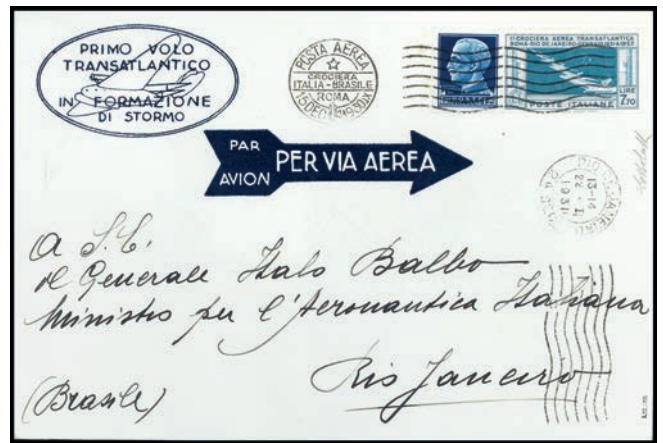 PRIMO VOLO
TRANSATLANTICO
IN FORMAZIONE
DI STORMO
POSTA AEREA
CROCIERA
ITALIA-BRASILE
ROMA
15 DEC 1930 IX
IIª CROCIERA AEREA TRANSATLANTICA
ROMA-RIO DE JANEIRO
LIRE
7,70
POSTE ITALIANE
PAR
AVION
PER VIA AEREA
RIO DE JANEIRO
13-14
22 I
1931
A S.E.
il Generale Italo Balbo
Ministro per l'Aeronautica Italiana
Rio Janeiro
(Brasile)